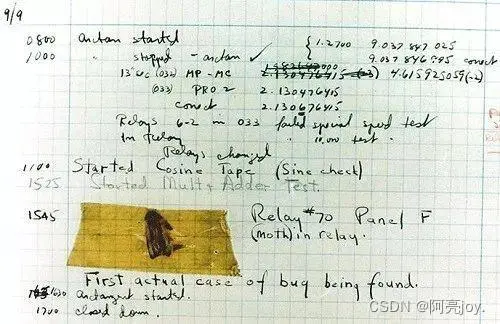 9/9
0800 antan started { 1.2700 9.037 847 025
1000 " stopped - antan ✓ 9.037 846 995 correct
13" uc (032) MP - MC 2.130476415 (-3) 4.615925059(-2)
(033) PRO 2 2.130476415
correct 2.130676415
Relays 6-2 in 033 failed special speed test
In Relay " 10,000 test.
Relays changed
1100 Started Cosine Tape (Sine check)
1525 Started Mult + Adder Test.
1545 Relay #70 Panel F
(moth) in relay.
First actual case of bug being found.
1630 antangent started.
1700 closed down.
CSDN @阿亮joy.